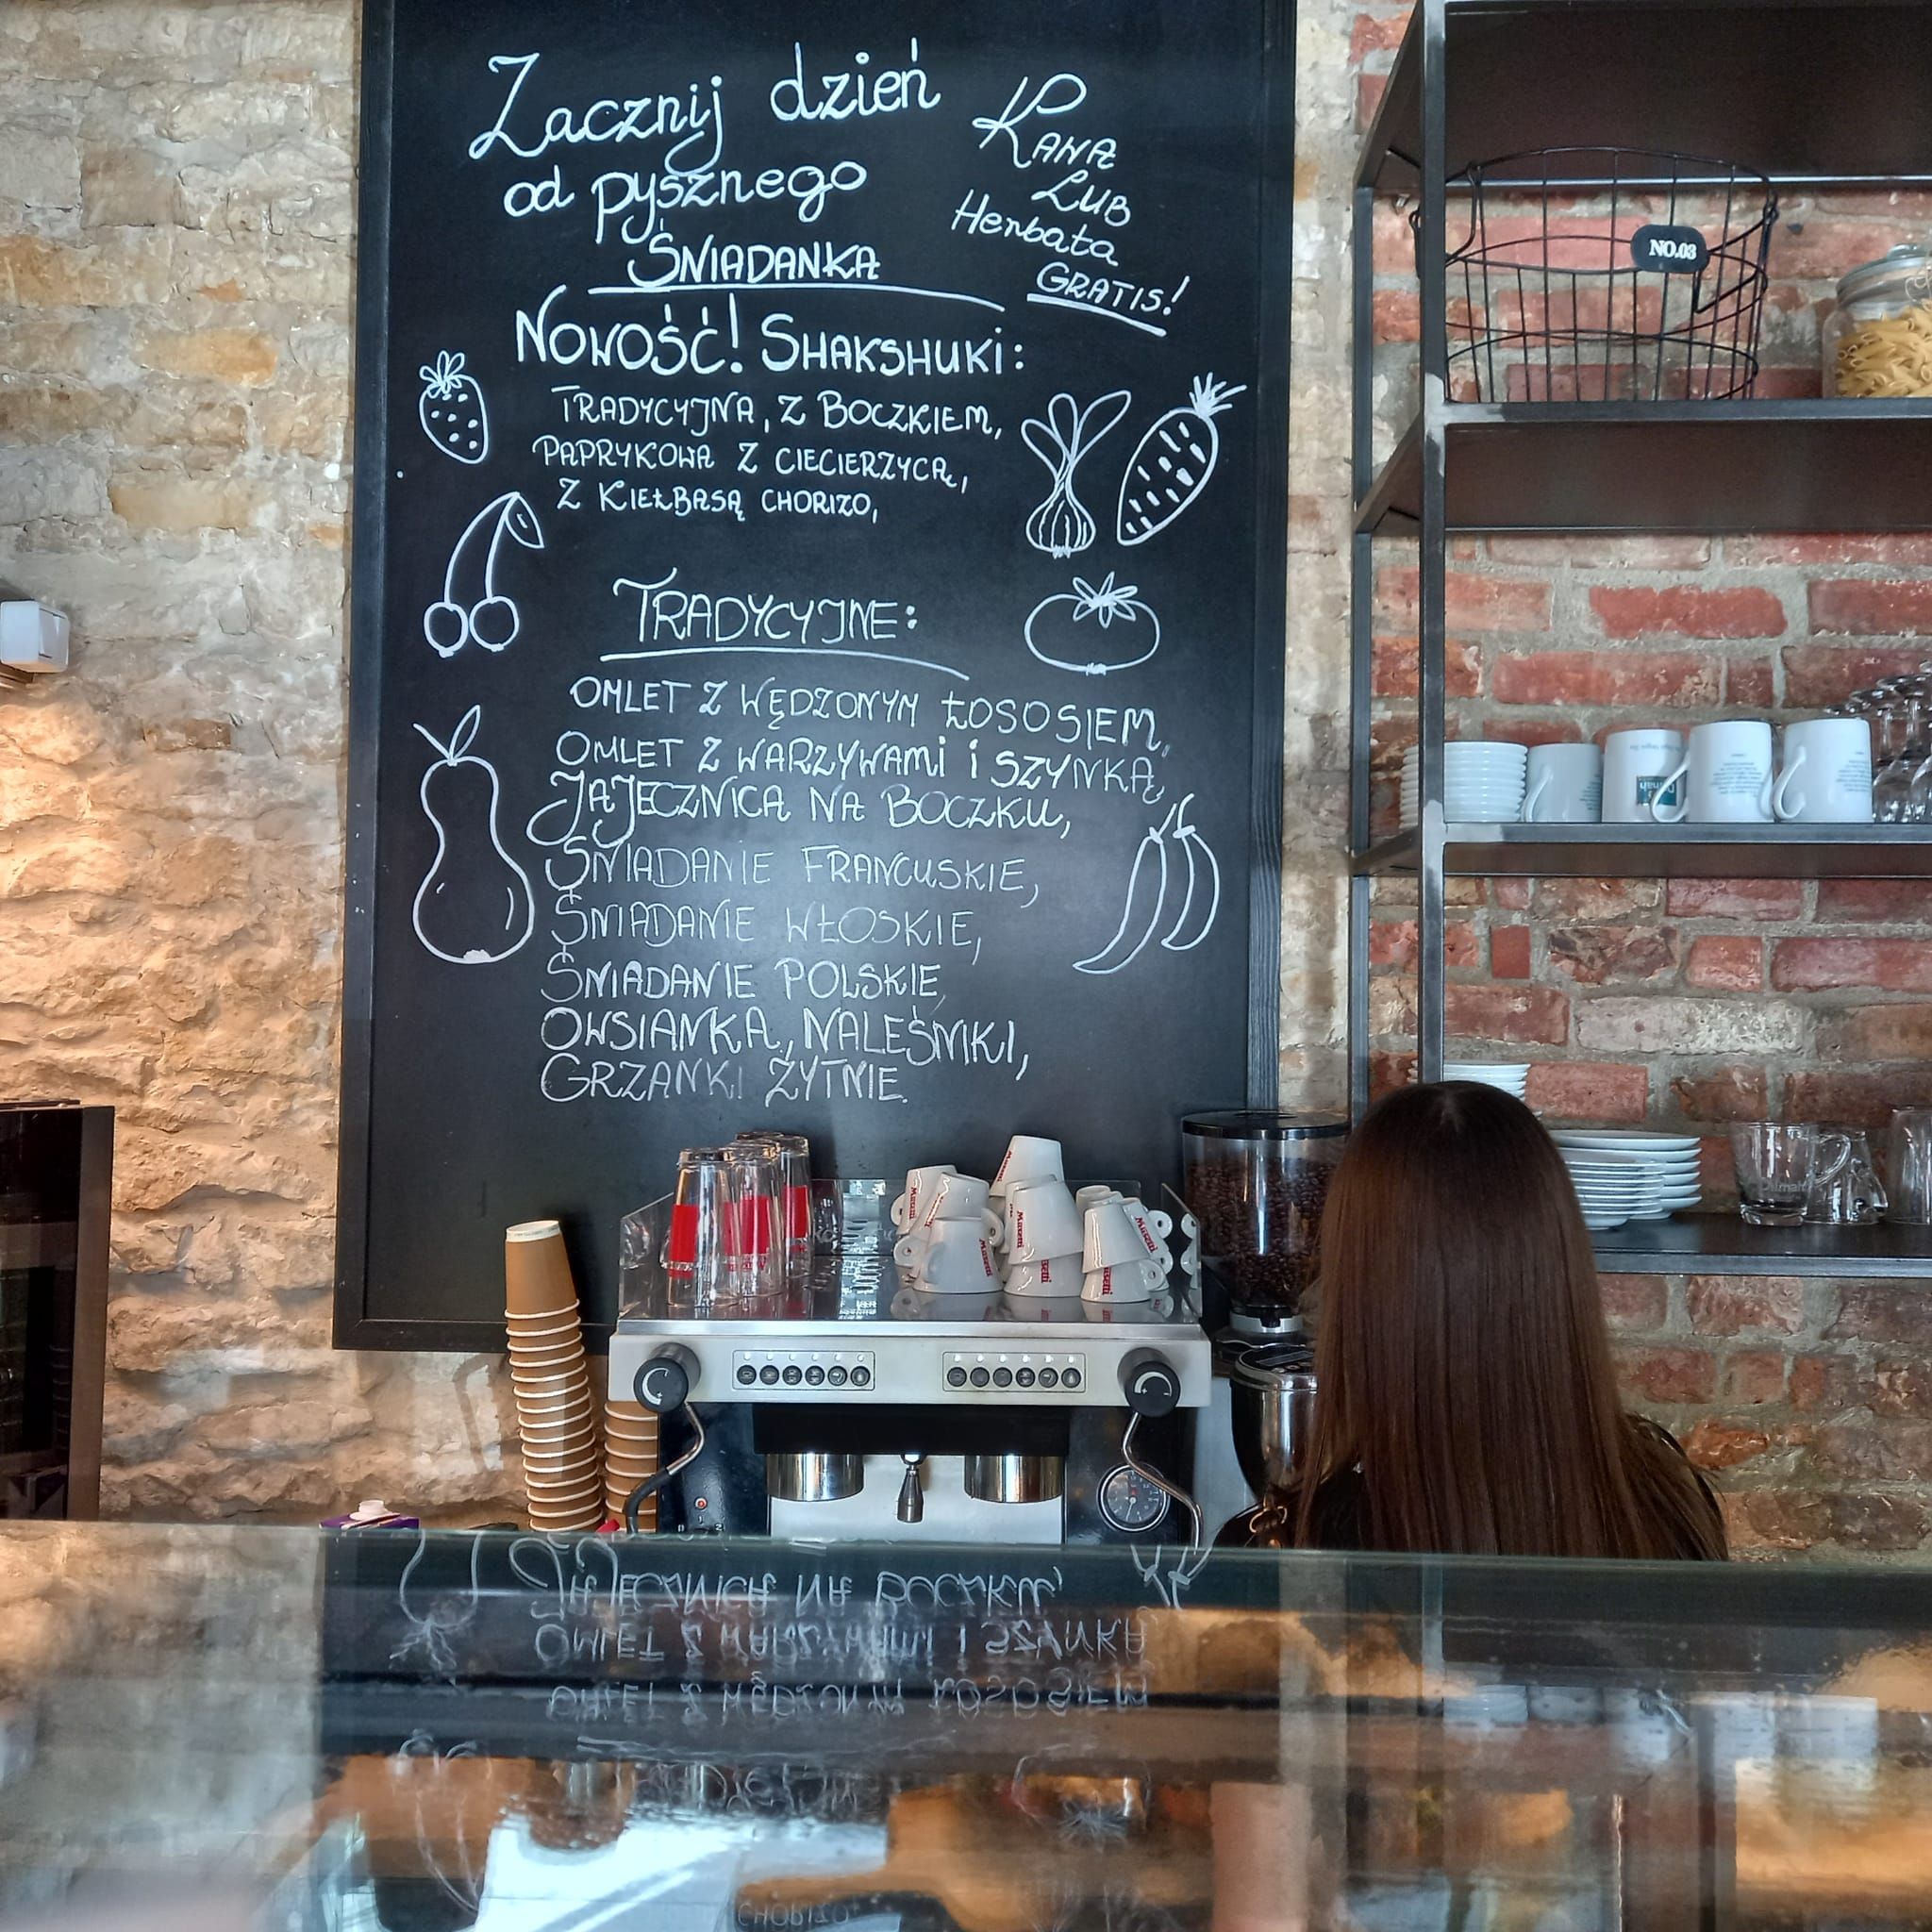 Zacznij dzień
od pysznego
ŚNIADANKA
KAWA
LUB
Herbata
GRATIS!
NOWOŚĆ! SHAKSHUKI:
TRADYCYJNA, Z BOCZKIEM,
PAPRYKOWA Z CIECIERZYCĄ,
Z KIEŁBASĄ CHORIZO,
TRADYCYJNE:
OMLET Z WĘDZONYM ŁOSOSIEM,
OMLET Z WARZYWAMI i SZYNKĄ,
JAJECZNICA NA BOCZKU,
ŚNIADANIE FRANCUSKIE,
ŚNIADANIE WŁOSKIE,
ŚNIADANIE POLSKIE,
OWSIANKA, NALEŚNIKI,
GRZANKI ŻYTNIE.
NO.03
Musetti
Musetti
Musetti